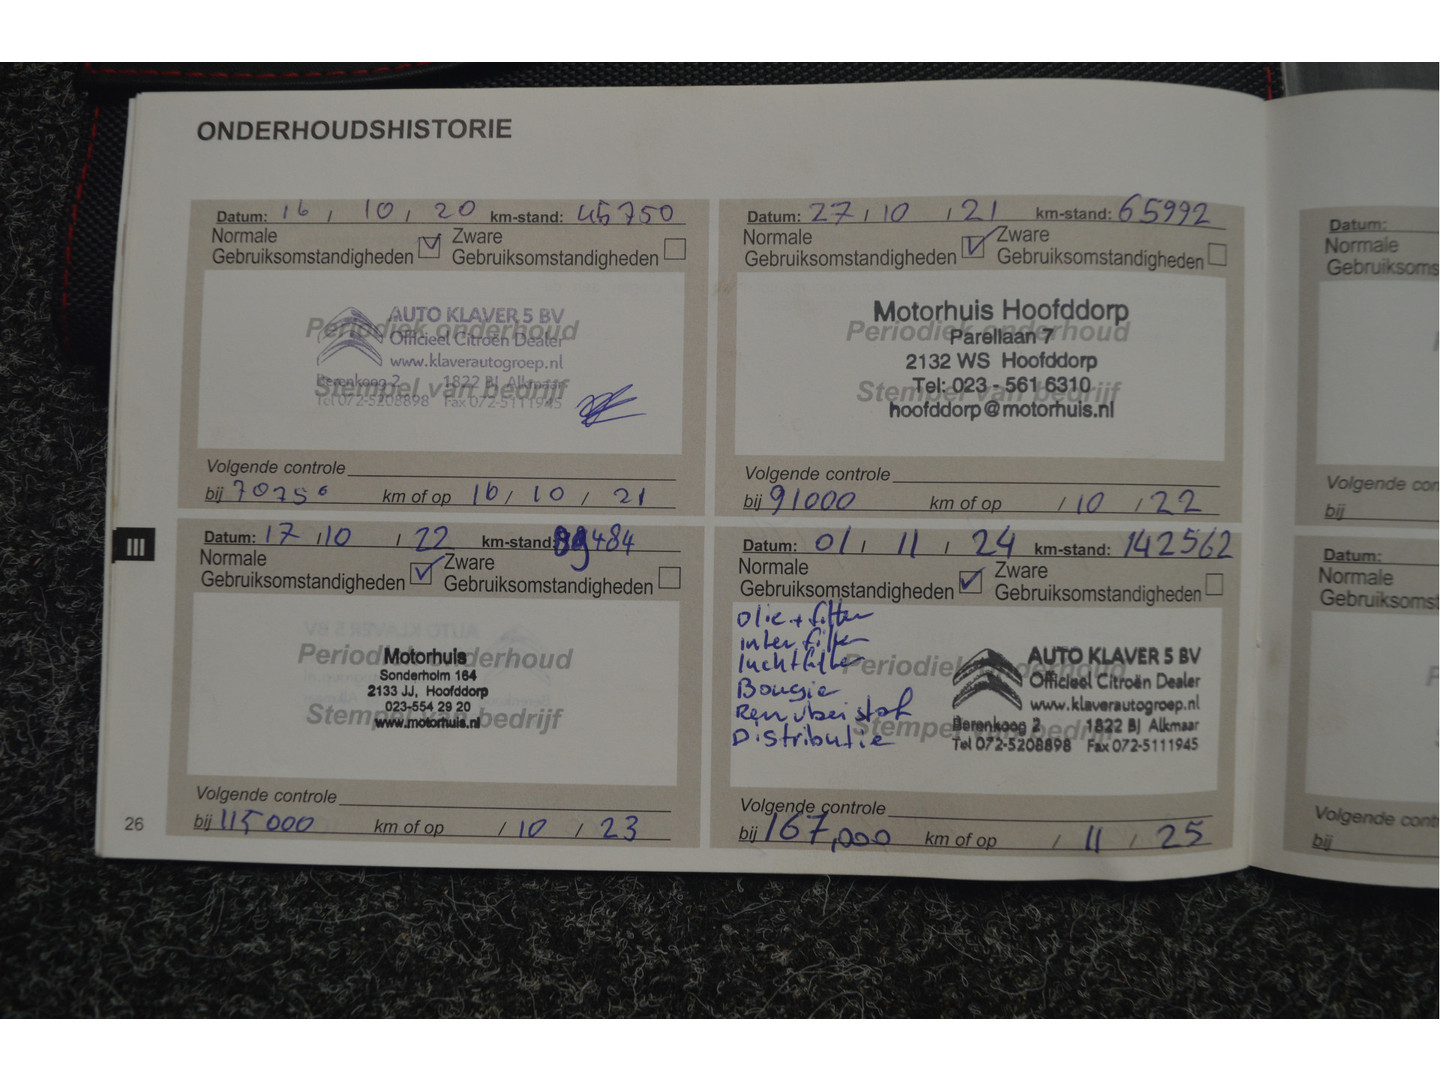 ONDERHOUDSHISTORIE
Datum: 16 / 10 / 20 km-stand: 45750
Normale Gebruiksomstandigheden Zware Gebruiksomstandigheden
Periodiek onderhoud
Stempel van bedrijf
AUTO KLAVER 5 BV
Officieel Citroën Dealer
www.klaverautogroep.nl
Berenkoog 2 1822 BJ Alkmaar
Tel 072-5208898 Fax 072-5111945
Volgende controle
bij 70750 km of op 16 / 10 / 21
Datum: 27 / 10 / 21 km-stand: 65992
Normale Gebruiksomstandigheden Zware Gebruiksomstandigheden
Periodiek onderhoud
Stempel van bedrijf
Motorhuis Hoofddorp
Parellaan 7
2132 WS Hoofddorp
Tel: 023 - 561 6310
hoofddorp@motorhuis.nl
Volgende controle
bij 91000 km of op / 10 / 22
III
Datum: 17 / 10 / 22 km-stand: 89484
Normale Gebruiksomstandigheden Zware Gebruiksomstandigheden
Periodiek onderhoud
Stempel van bedrijf
Motorhuis
Sonderholm 164
2133 JJ, Hoofddorp
023-554 29 20
www.motorhuis.nl
Volgende controle
bij 115000 km of op / 10 / 23
Datum: 01 / 11 / 24 km-stand: 142562
Normale Gebruiksomstandigheden Zware Gebruiksomstandigheden
Olie + filter
inter filter
luchtfilter
Bougie
Distributie
Periodiek onderhoud
Stempel van bedrijf
AUTO KLAVER 5 BV
Officieel Citroën Dealer
www.klaverautogroep.nl
Berenkoog 2 1822 BJ Alkmaar
Tel 072-5208898 Fax 072-5111945
Volgende controle
bij 167,000 km of op / 11 / 25
26
Datum:
Normale
Gebruiksoms
Volgende con
bij
Datum:
Normale
Gebruiksomst
Volgende cont
bij